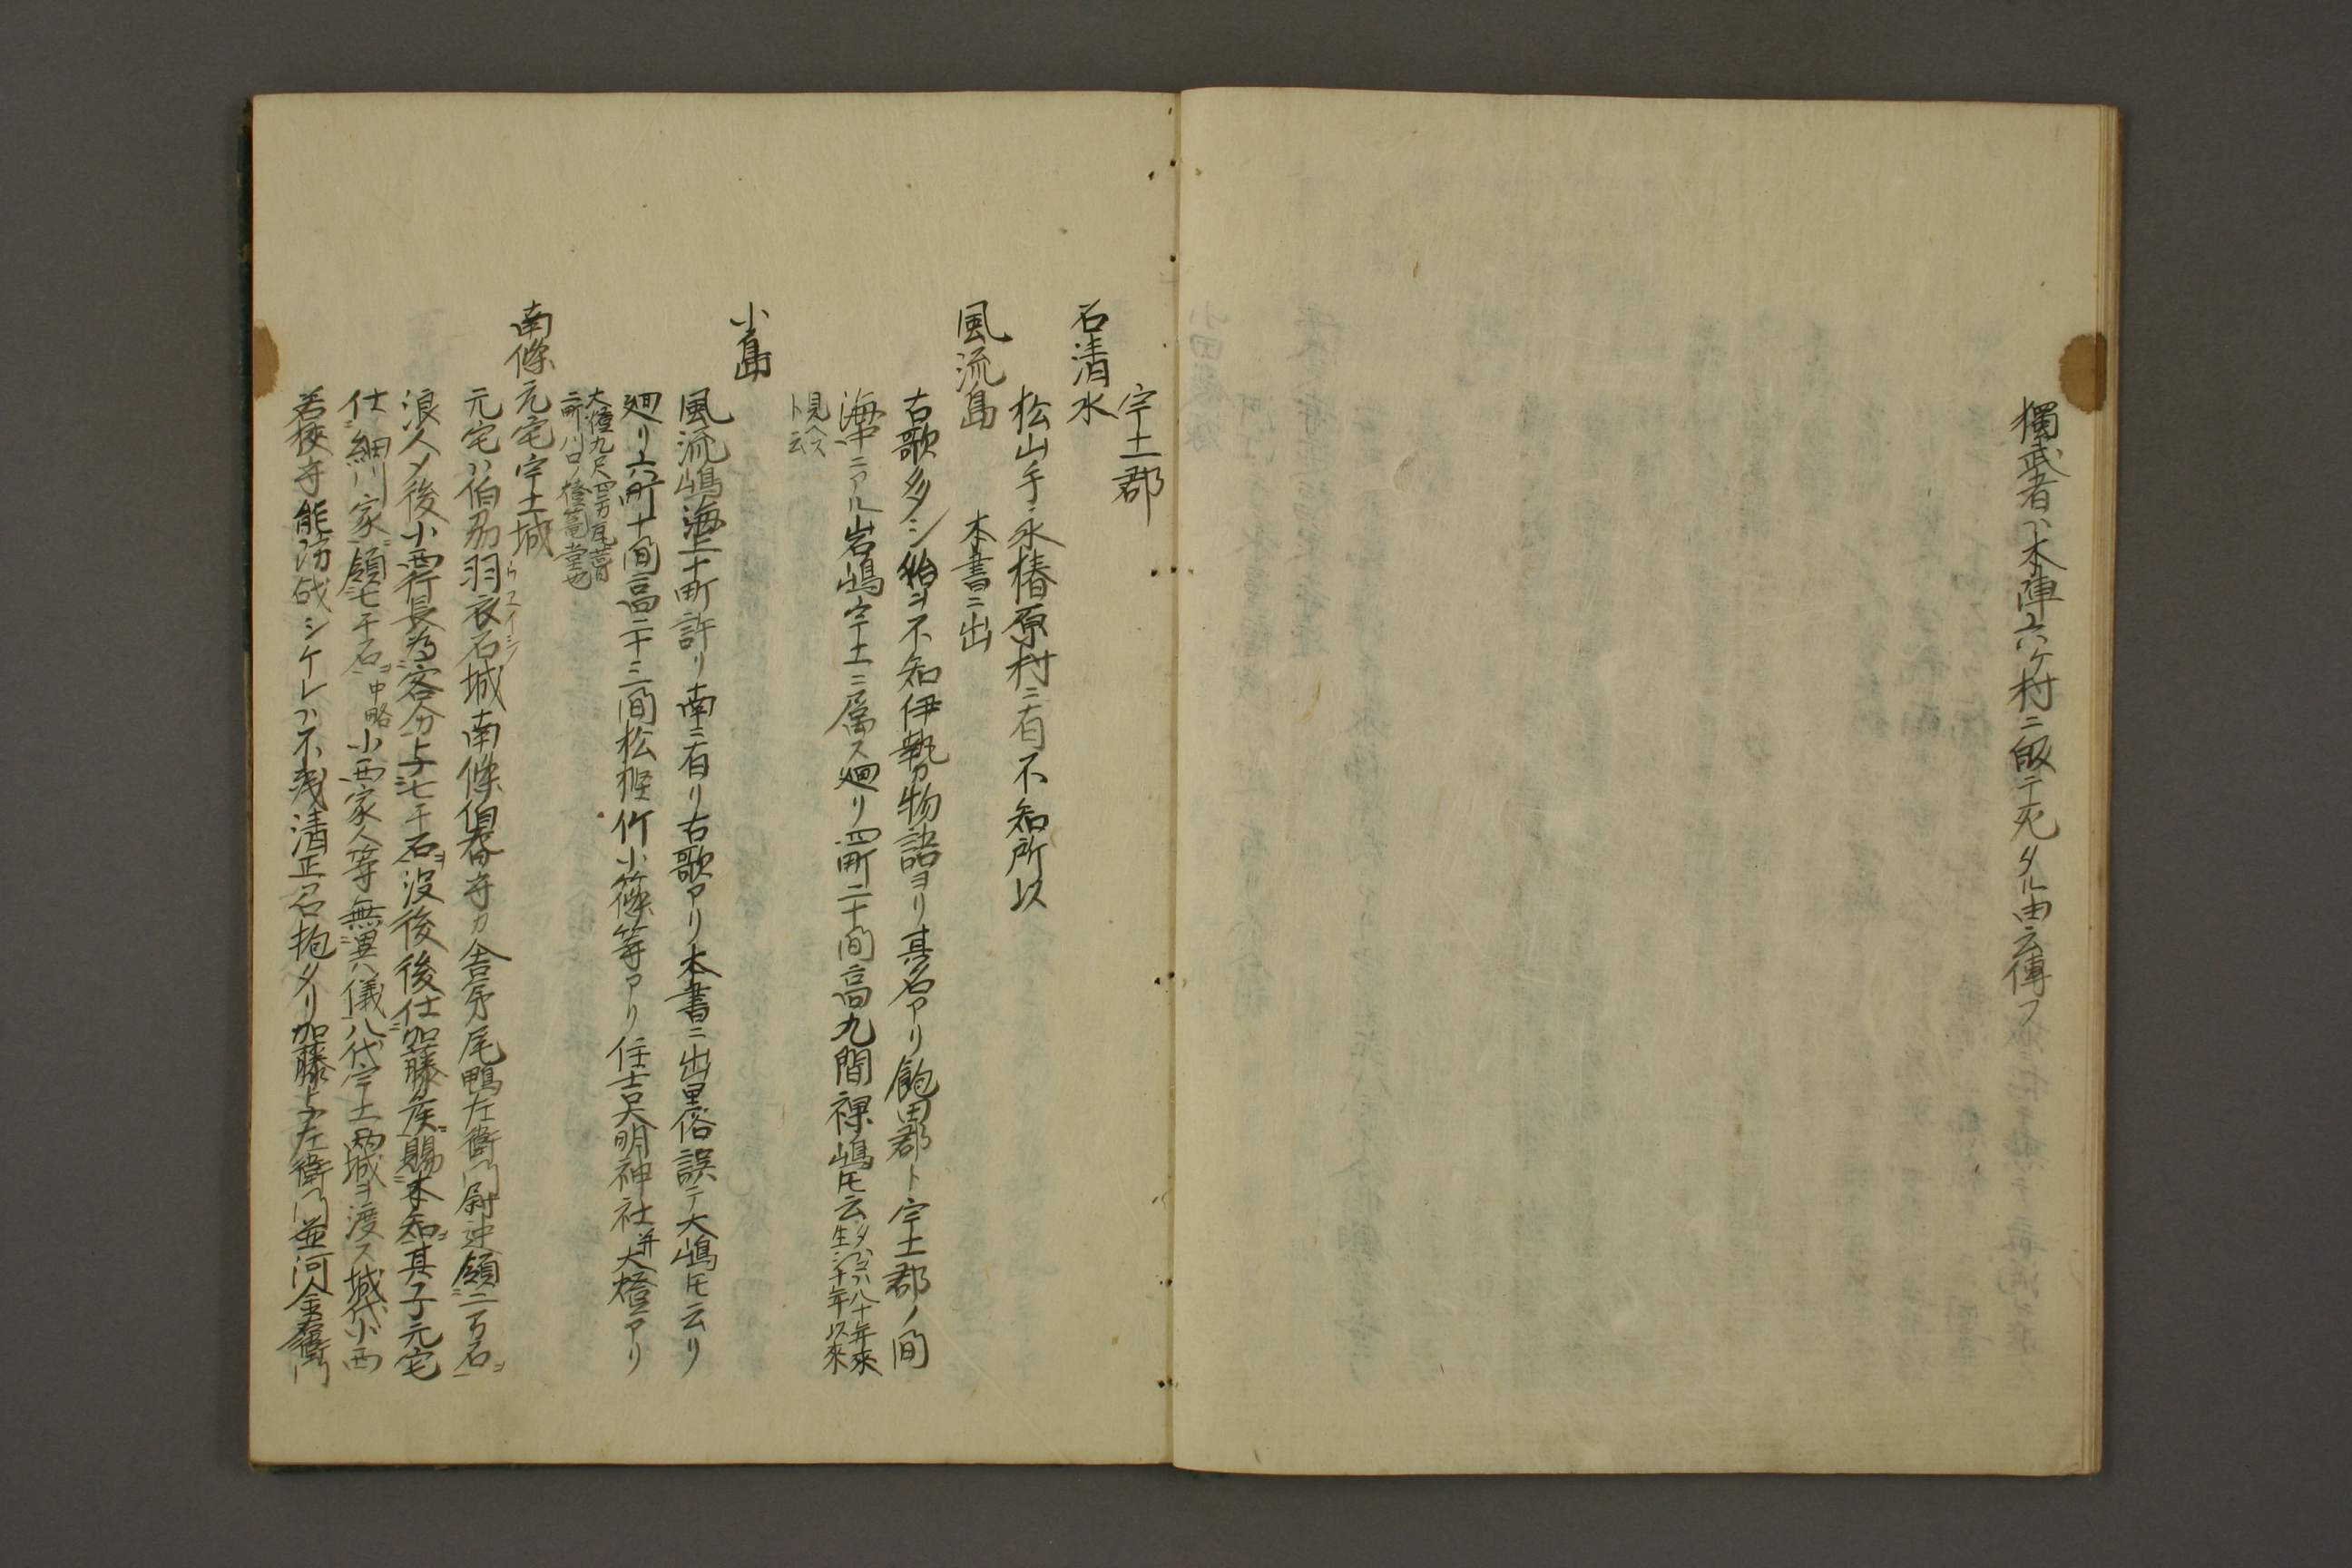 獨武者ハ木陣六ケ村ニ皈テ死タル由云傳フ
宇土郡
石清水
松山手永椿原村ニ有不知所以
風流島　本書ニ出
古歌多シ始ヲ不知伊勢カ物語ヨリ其名アリ飽田郡ト宇土郡ノ間
海中ニアル岩嶋宇土ニ属ス廻リ四町二十間高九間裸嶋トモ云
生シ十年以来
見ヘス
ト云
小島
風流嶋海上十町許リ南ニ有リ古歌アリ本書ニ出里俗誤テ大嶋トモ云リ
廻リ六町十間高二十三間松樫竹小篠等アリ住吉大明神社并大燈アリ
大燈九尺四方瓦葺
二町川口ノ燈篭堂也
南條元宅宇土城
元宅ハ伯刕羽衣石城南條伯耆守カ舎弟尾鴨左衛門尉迚領二万石ヲ
浪人メ後小西行長為客分与七千石ヲ没後後仕加藤侯賜本知ヲ其子元宅
仕細川家領七千石ヲ中略小西家人等無異儀八代宇土両城ヲ渡ス城代小西
若狭守能防戦シケレハ不残清正召抱タリ加藤与左衛門並河金右衛門